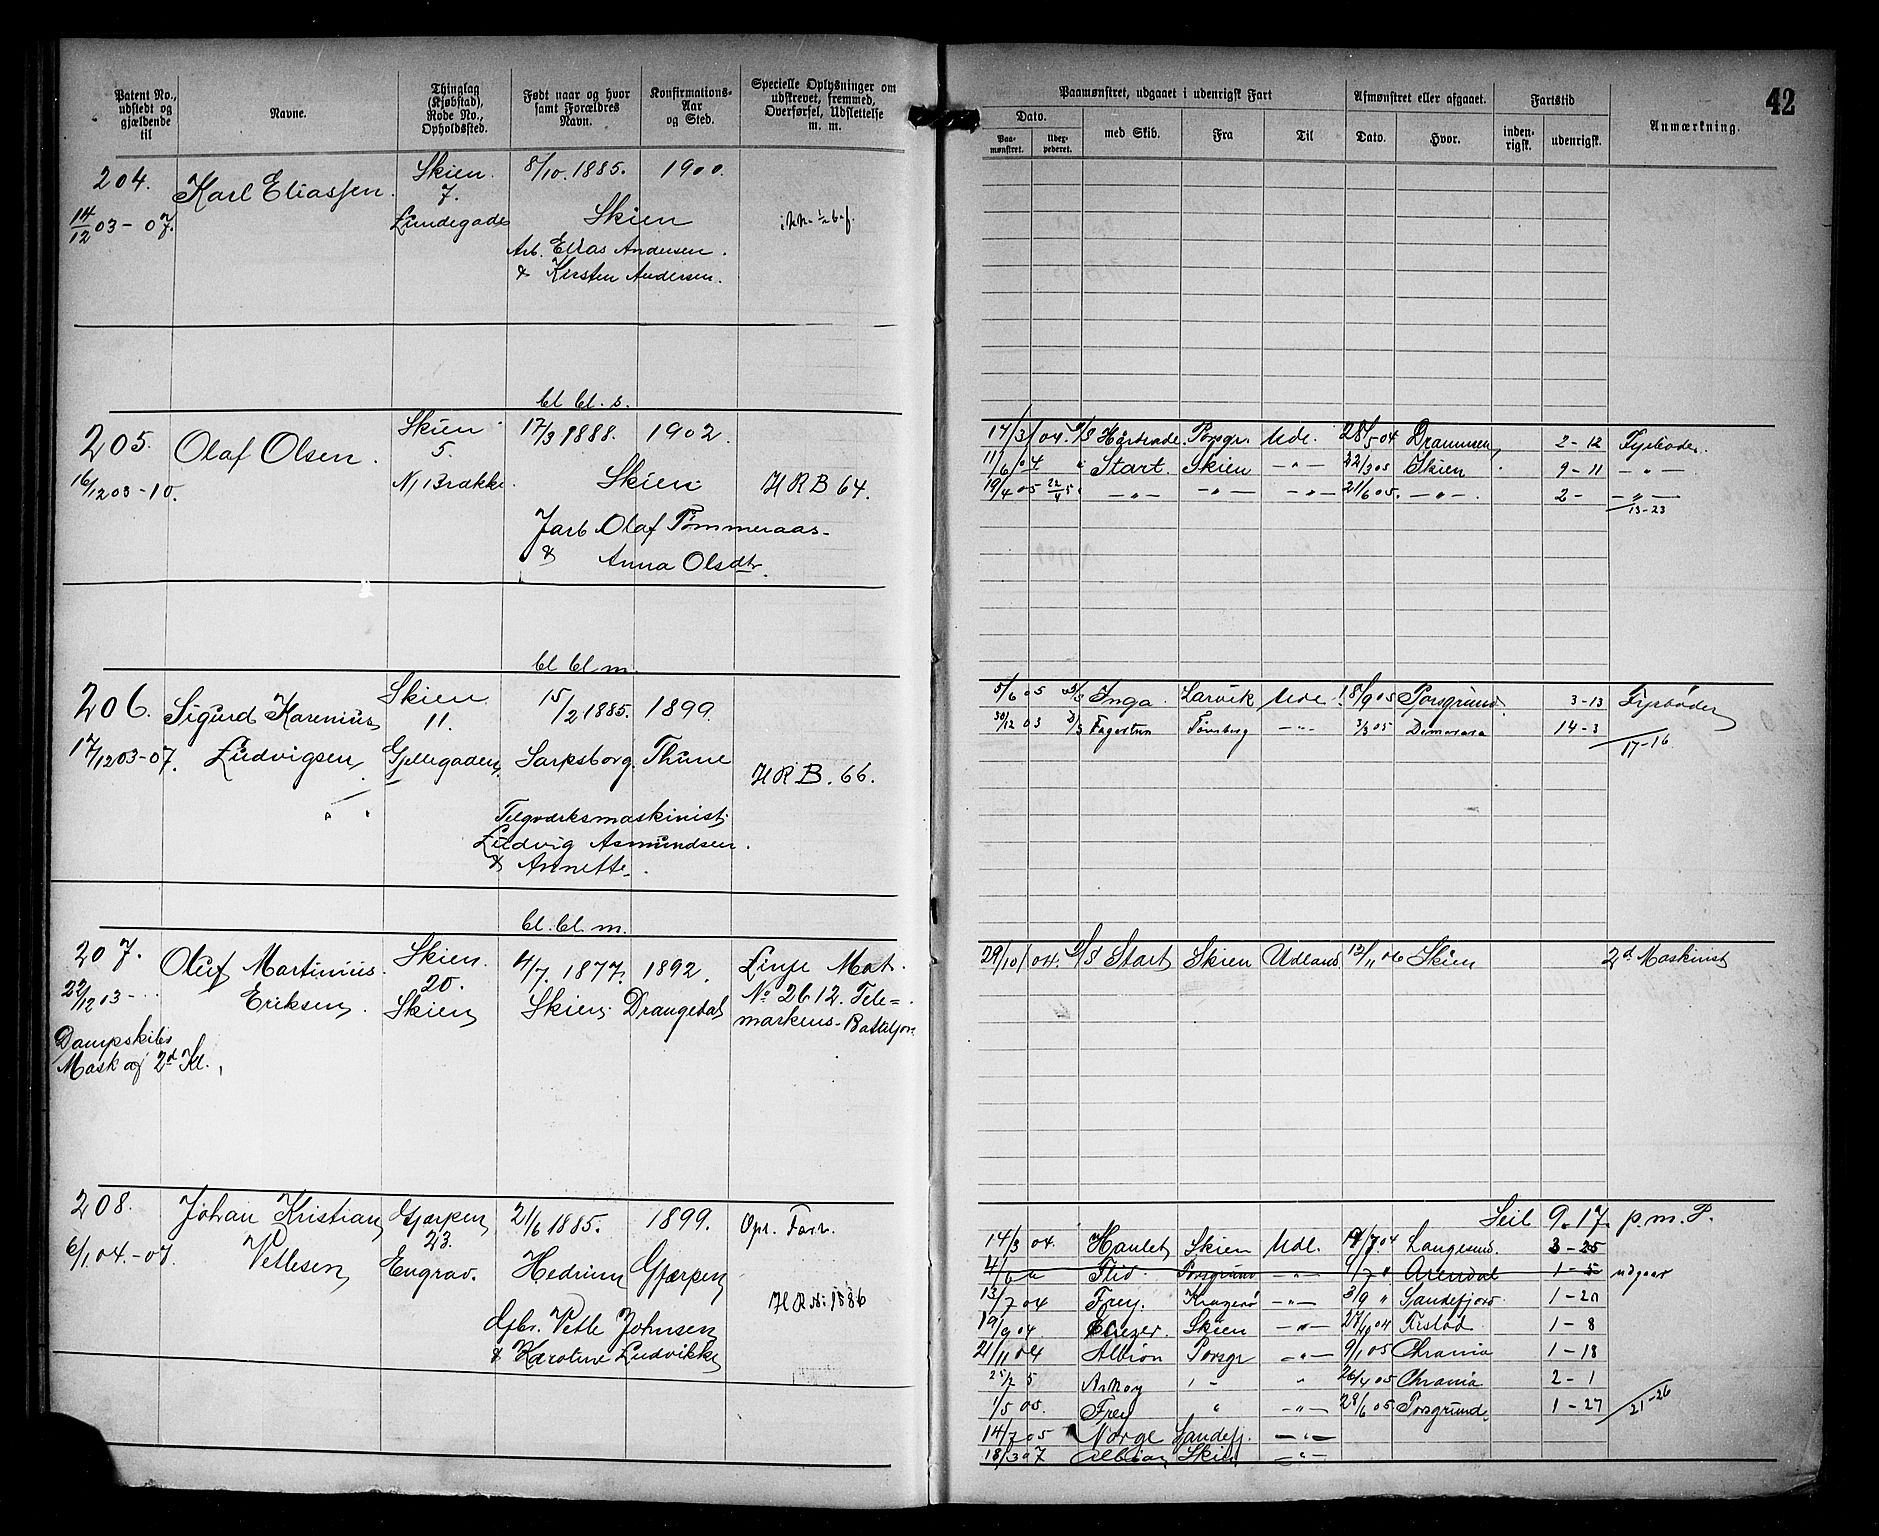 Patent No., udstedt og gjældende til
Navne.
Thinglag (Kjøbstad), Rode No., Opholdssted.
Født naar og hvor samt Forældres Navn.
Konfirmations-Aar og Sted.
Specielle Oplysninger om udskrevet, fremmed, Overførsel, Udslettelse m. m.
Paamønstret, udgaaet i udenrigsk Fart
Afmønstret eller afgaaet.
Fartstid
42
Dato.
Paamønstret.
med Skib.
Fra
Til
Dato.
Hvor.
indenrigsk.
udenrigsk.
Anmærkning.
204. Karl Eliassen. Skien. 8/10. 1885. 1900.
7.
14/12 03 - 07. Lundegade Skien
Arb. Elias Andersen.
& Kirsten Andersen.
bl bl. s.
205. Olaf Olsen. Skien 17/3 1888. 1902.
5.
16/12 03-10. N. Brække. Skien. H R B 64.
Jarb Olaf Tømmeraas
& Anna Olsdtr.
17/3 04. Porsgr. Udl. 28/5 04 Drammen, 2-12 Fyrbøder.
11/6 04 Start. Skien -"- 22/3 05 Skien 9-11 -"-
19/4 05 22/4 5 -"- -"- -"- 21/6 05. -"-. 2- -"-
13-23
bl bl m.
206. Sigurd Karenius Skien 15/2 1885. 1899.
11.
17/12 03-07. Ludvigsen, Gjellegaden, Sarpsborg. Thune H R B. 66.
Ludvig Asmundsen.
& Annette.
5/6 05 Inga. Larvik Udl. 18/9 05 Porsgrund. 3-13 Fyrbøder
30/12 03 Tønsberg -"- 3/3 05 Demerara 14-3
17-16
bl. bl. m.
207. Oluf Martinius Skien. 4/7. 1877. 1892. Linje Mat.
20. No 2612. Tele=
22/12 03-... Eriksen. Skien, Skien. Drangedal markens-Bataljon
Dampskibs
Mask af 2d Kl.
29/10 04. D/S Start Skien Udland 13/11 06 Skien 2d Maskinist
208. Johan Kristian Gjerpen 21/6 1885. 1899. Opr. Forr.
23.
6/1 04-07. Vetlesen, Engrav. Hedrum Gjerpen
H R No 1886
Gbr. Vetle Johnsen
& Karoline Ludvikke
Seil 9.17. p.m.P.
14/3 04. Skien Udl. 19/7 04 Langesund. 3-25
4/6 " Flid. Porsgrund -"- 9/7 " Arendal 1-5 udgaar
13/7 04 Frey. Kragerø -"- 3/9 " Sandefjord. 1-20
19/9 04. Skien -"- 27/10 04 1-8
21/11 04 Albion Porsgr -"- 9/1 05 Chrania 1-18
25/2 5 Askøy " - " 26/4 05 Chrania 2-1
1/5 05. Frey " -"- 28/6 05. Porsgrund. 1-27 21-26
14/7 05 Norge Sandefj. -"-
18/3 07 Albion, Skien -"-